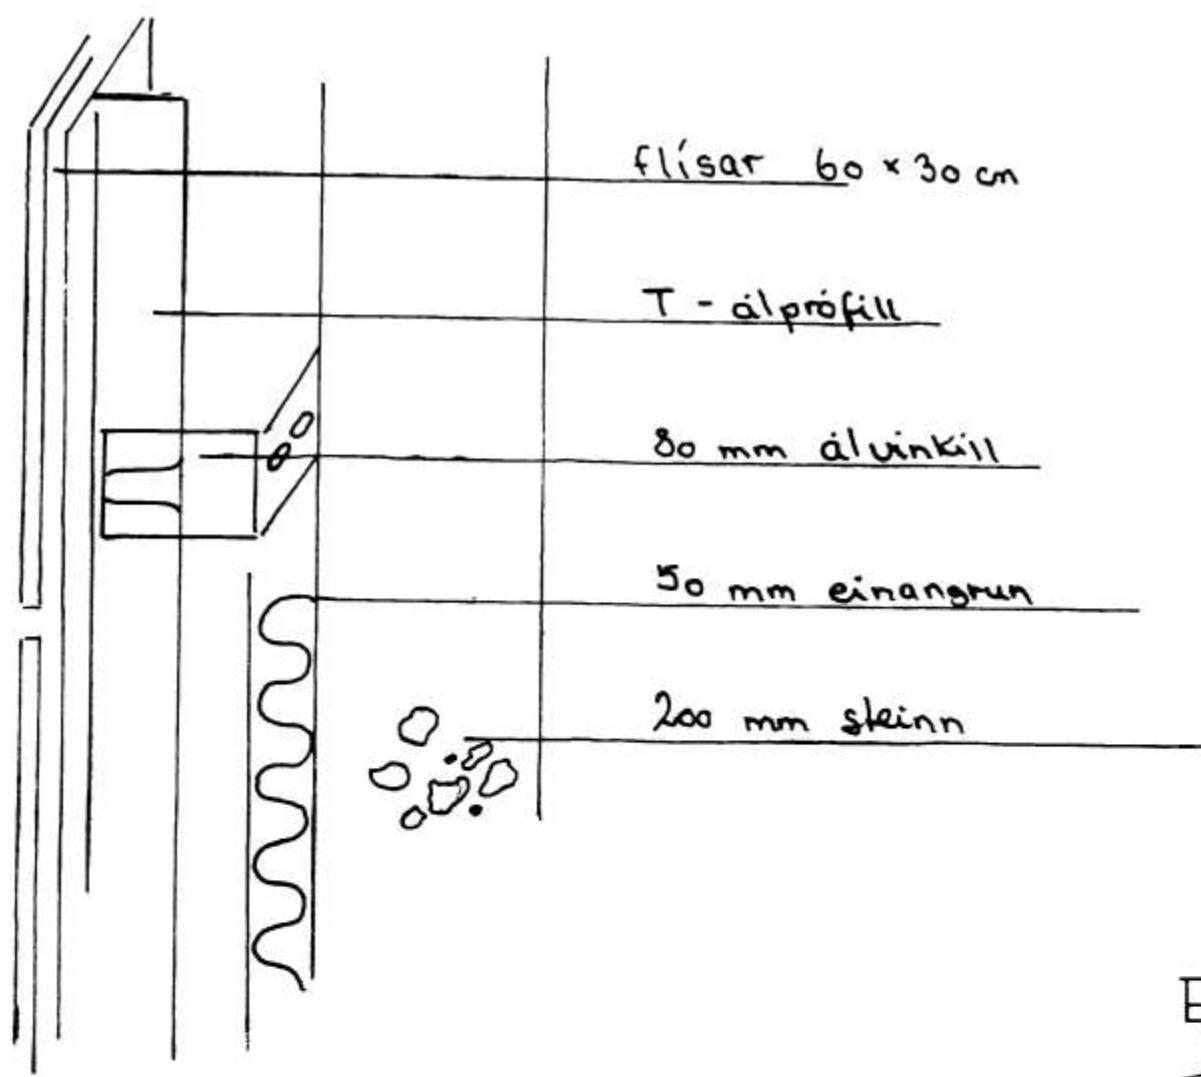 flísar 60 × 30 cm
T - álprófíll
80 mm álvinkill
50 mm einangrun
200 mm steinn